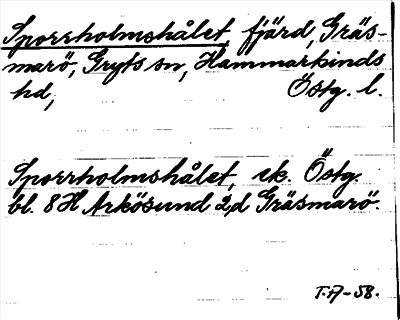 Sporrholmshålet, fjärd, Gräs-
marö, Gryts sn, Hammarkinds
hd, Östg. l.
Sporrholmshålet, ek. Östg.
bl. 8H Arkösund 2,d Gräsmarö.
T.A-58.